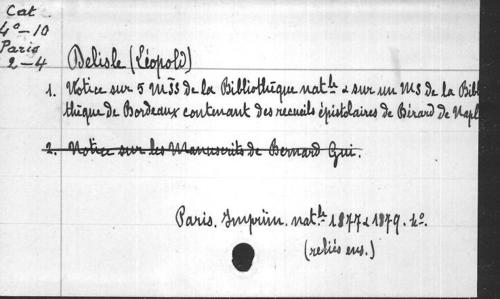 Cat
4°-10
Paris
2-4
Delisle (Léopold)
1. Notice sur 5 MSS de la Bibliothèque natle & sur un MS de la Bibl
thèque de Bordeaux contenant des recueils épistolaires de Bérard de Napl
2. Notice sur les Manuscrits de Bernard Gui.
Paris. Imprim. natle 1877 & 1879. 4°.
(reliés ens.)